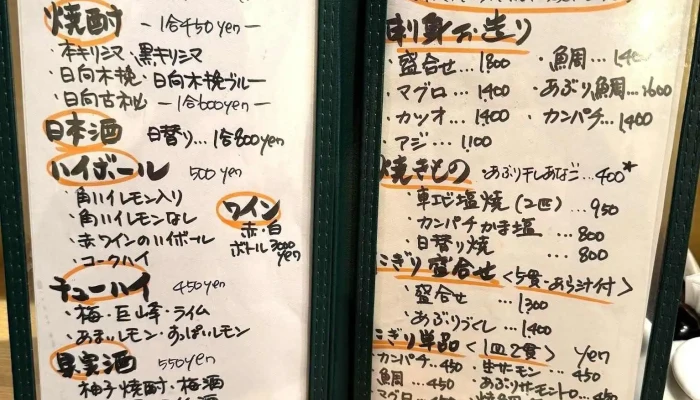 焼酎 －1合450yen－
・本キリシマ・黒キリシマ
・日向木挽・日向木挽ブルー
・日向古秘 －1合600yen－
日本酒 日替り…1合800yen
ハイボール 500yen
・角ハイレモン入り
・角ハイレモンなし
・赤ワインのハイボール
・コークハイ
ワイン
赤・白
ボトル3000
yen
チューハイ 450yen
・梅・巨峰・ライム
・あまいレモン・すっぱいレモン
果実酒 550yen
柚子焼酎・梅酒
刺身お造り
・盛合せ…1,800 ・魚周…1,400
・マグロ…1,400 ・あぶり魚周…1,600
・カツオ…1,400 ・カンパチ…1,400
・アジ…1,100
焼きもの ・あぶり干しあなご…400*
・車エビ塩焼(2匹)…950
・カンパチかま塩…800
・日替り焼…800
にぎり盛合せ<5貫・あら汁付>
・盛合せ…1,300
・あぶりづくし…1,400
にぎり単品<1皿2貫> yen
・カンパチ…450 ・生サーモン…450
・魚周…450 ・あぶりサーモントロ…450
・マグロ…450